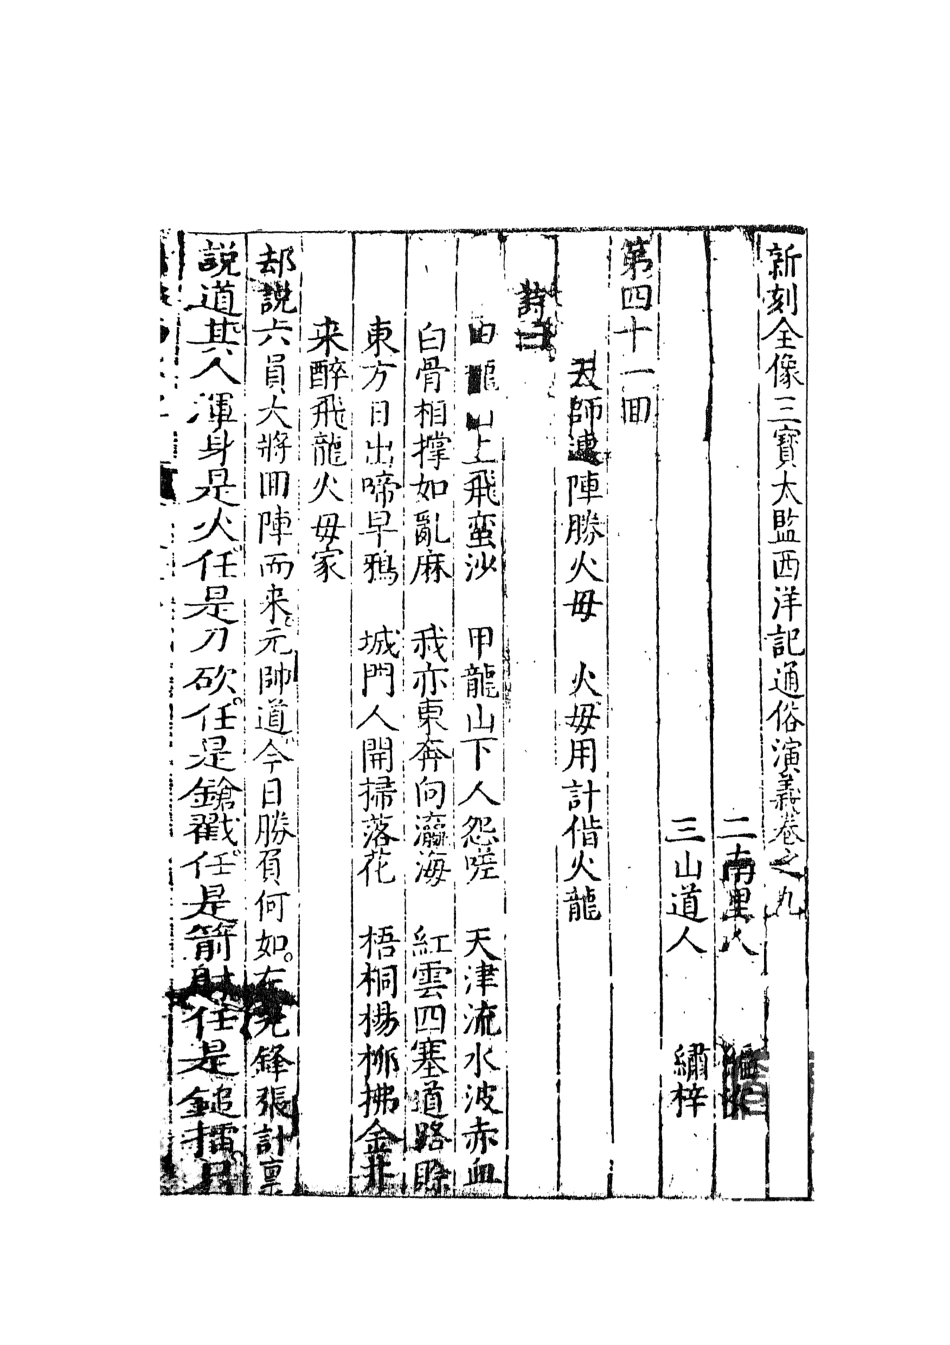 新刻全像三寶太監西洋記通俗演義卷之九
二南里人　編次
三山道人　繡梓
第四十一囬
天師連陣勝火毋　火毋用計偕火龍
詩曰
甲龍山上飛蛮沙　甲龍山下人怨嗟　天津流水波赤血
白骨相撑如亂麻　我亦東奔向瀛海　紅雲四塞道路賒
東方日出啼早鴉　城門人開掃落花　梧桐楊栁拂金井
来醉飛龍火毋家
却説六員大將囬陣而来元帥道今日勝負何如。左先鋒張計禀
説道其人渾身是火任是刀砍。任是鎗戳任是箭射任是鎚擂。只